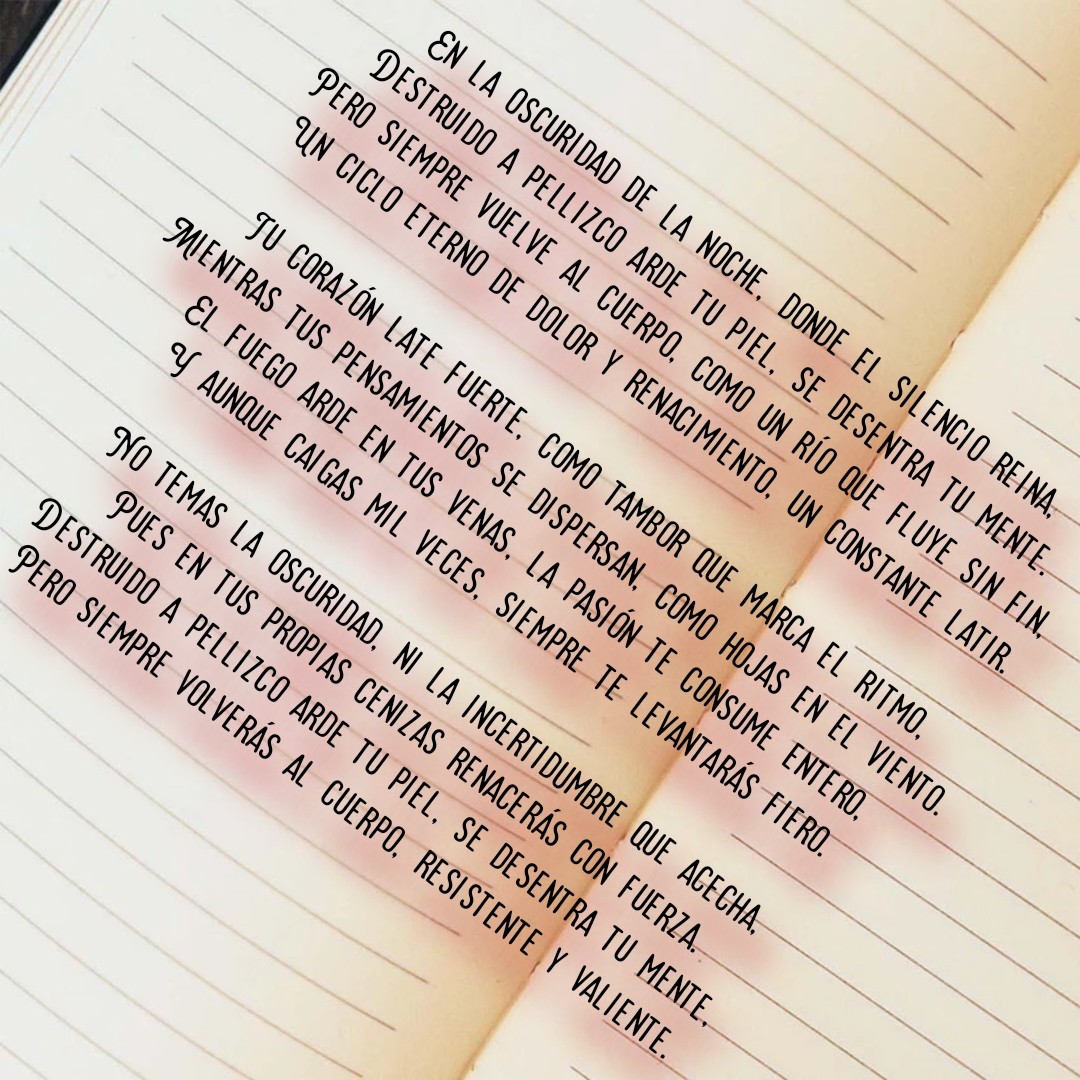 En la oscuridad de la noche, donde el silencio reina,
Destruido a pellizco arde tu piel, se desentra tu mente.
Pero siempre vuelve al cuerpo, como un río que fluye sin fin,
Un ciclo eterno de dolor y renacimiento, un constante latir.
Tu corazón late fuerte, como tambor que marca el ritmo,
Mientras tus pensamientos se dispersan, como hojas en el viento.
El fuego arde en tus venas, la pasión te consume entero,
Y aunque caigas mil veces, siempre te levantarás fiero.
No temas la oscuridad, ni la incertidumbre que acecha,
Pues en tus propias cenizas renacerás con fuerza.
Destruido a pellizco arde tu piel, se desentra tu mente,
Pero siempre volverás al cuerpo, resistente y valiente.